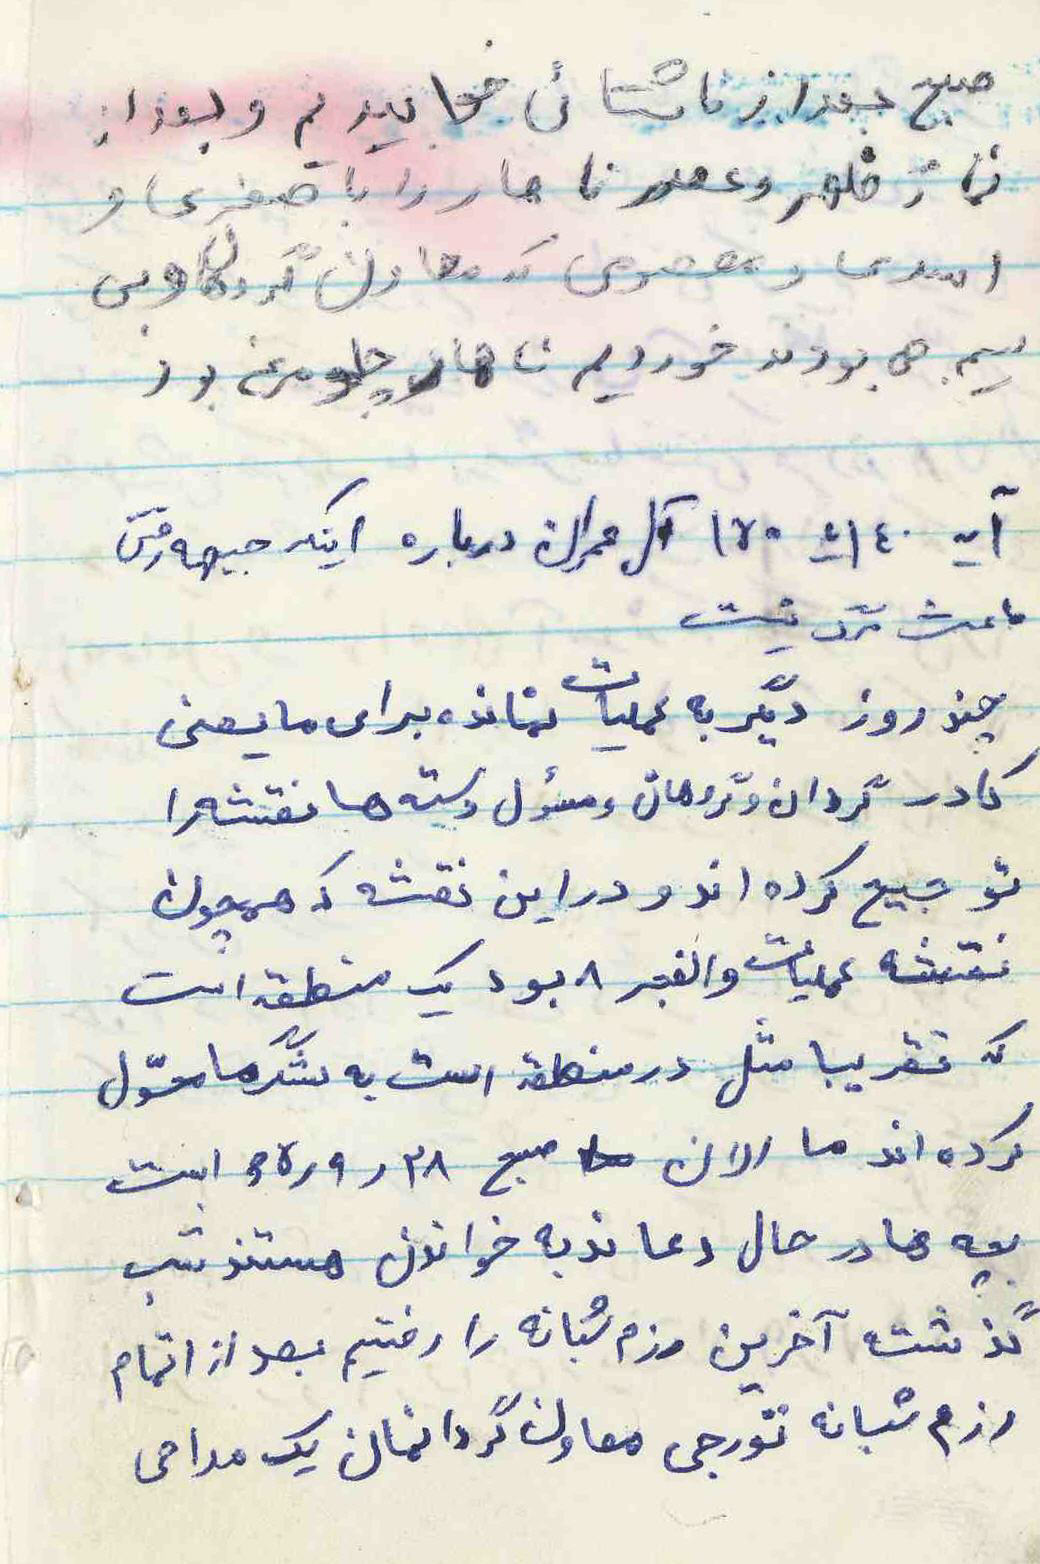 صبح بعد از ناشتائی خوابیدیم و بعد از
نماز ظهر و عصر ناهار را با صفری و
اسدی و معصومی که معاون گردان و بی
سیم چی بودند خوردیم ناهار چلو مرغ بود
آیه ۱۴۰ تا ۱۷۰ آل عمران درباره اینکه جبهه رفتن
باعث مرگ نیست
چند روز دیگر به عملیات نمانده برای ما یعنی
کادر گردان و گروهان و مسئول دسته ها نقشه را
توجیح کرده اند و در این نقشه که همچون
نقشه عملیات والفجر ۸ بود یک منطقه است
که تقریبا مثل در منطقه است به لشگر ما محوّل
کرده اند ما الان صبح ۲۸ ر ۹ ر ۶۵ است
بچه ها در حال دعا ندبه خواندن هستند شب
گذشته آخرین رزم شبانه را رفتیم بعد از اتمام
رزم شبانه تورجی معاون گردانمان یک مداحی